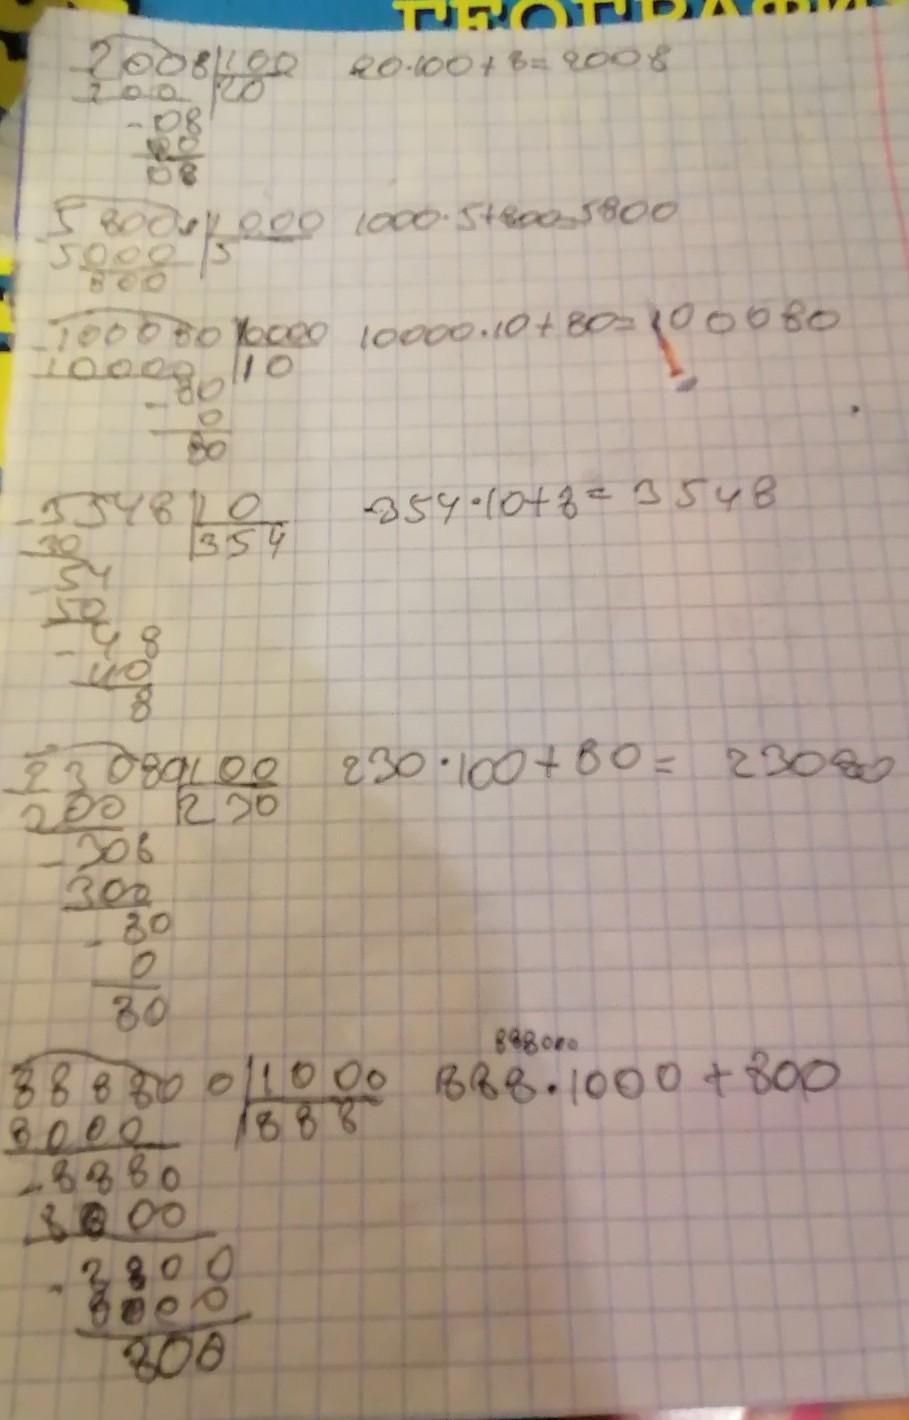 ГЕОГРАФИ
2008 100 20·100+8=2008
200 20
-08
80
08
5800 1000 1000·5+800=5800
5000 5
800
-100080 10000 10000·10+80=100080
10000 10
-80
0
80
-3548 10 354·10+8=3548
30 354
-54
50
-48
40
8
23080 100 230·100+80= 23080
200 230
-308
300
-80
0
80
888000
888800 1000 888·1000+800
8000 888
-8880
8000
-8800
8000
800